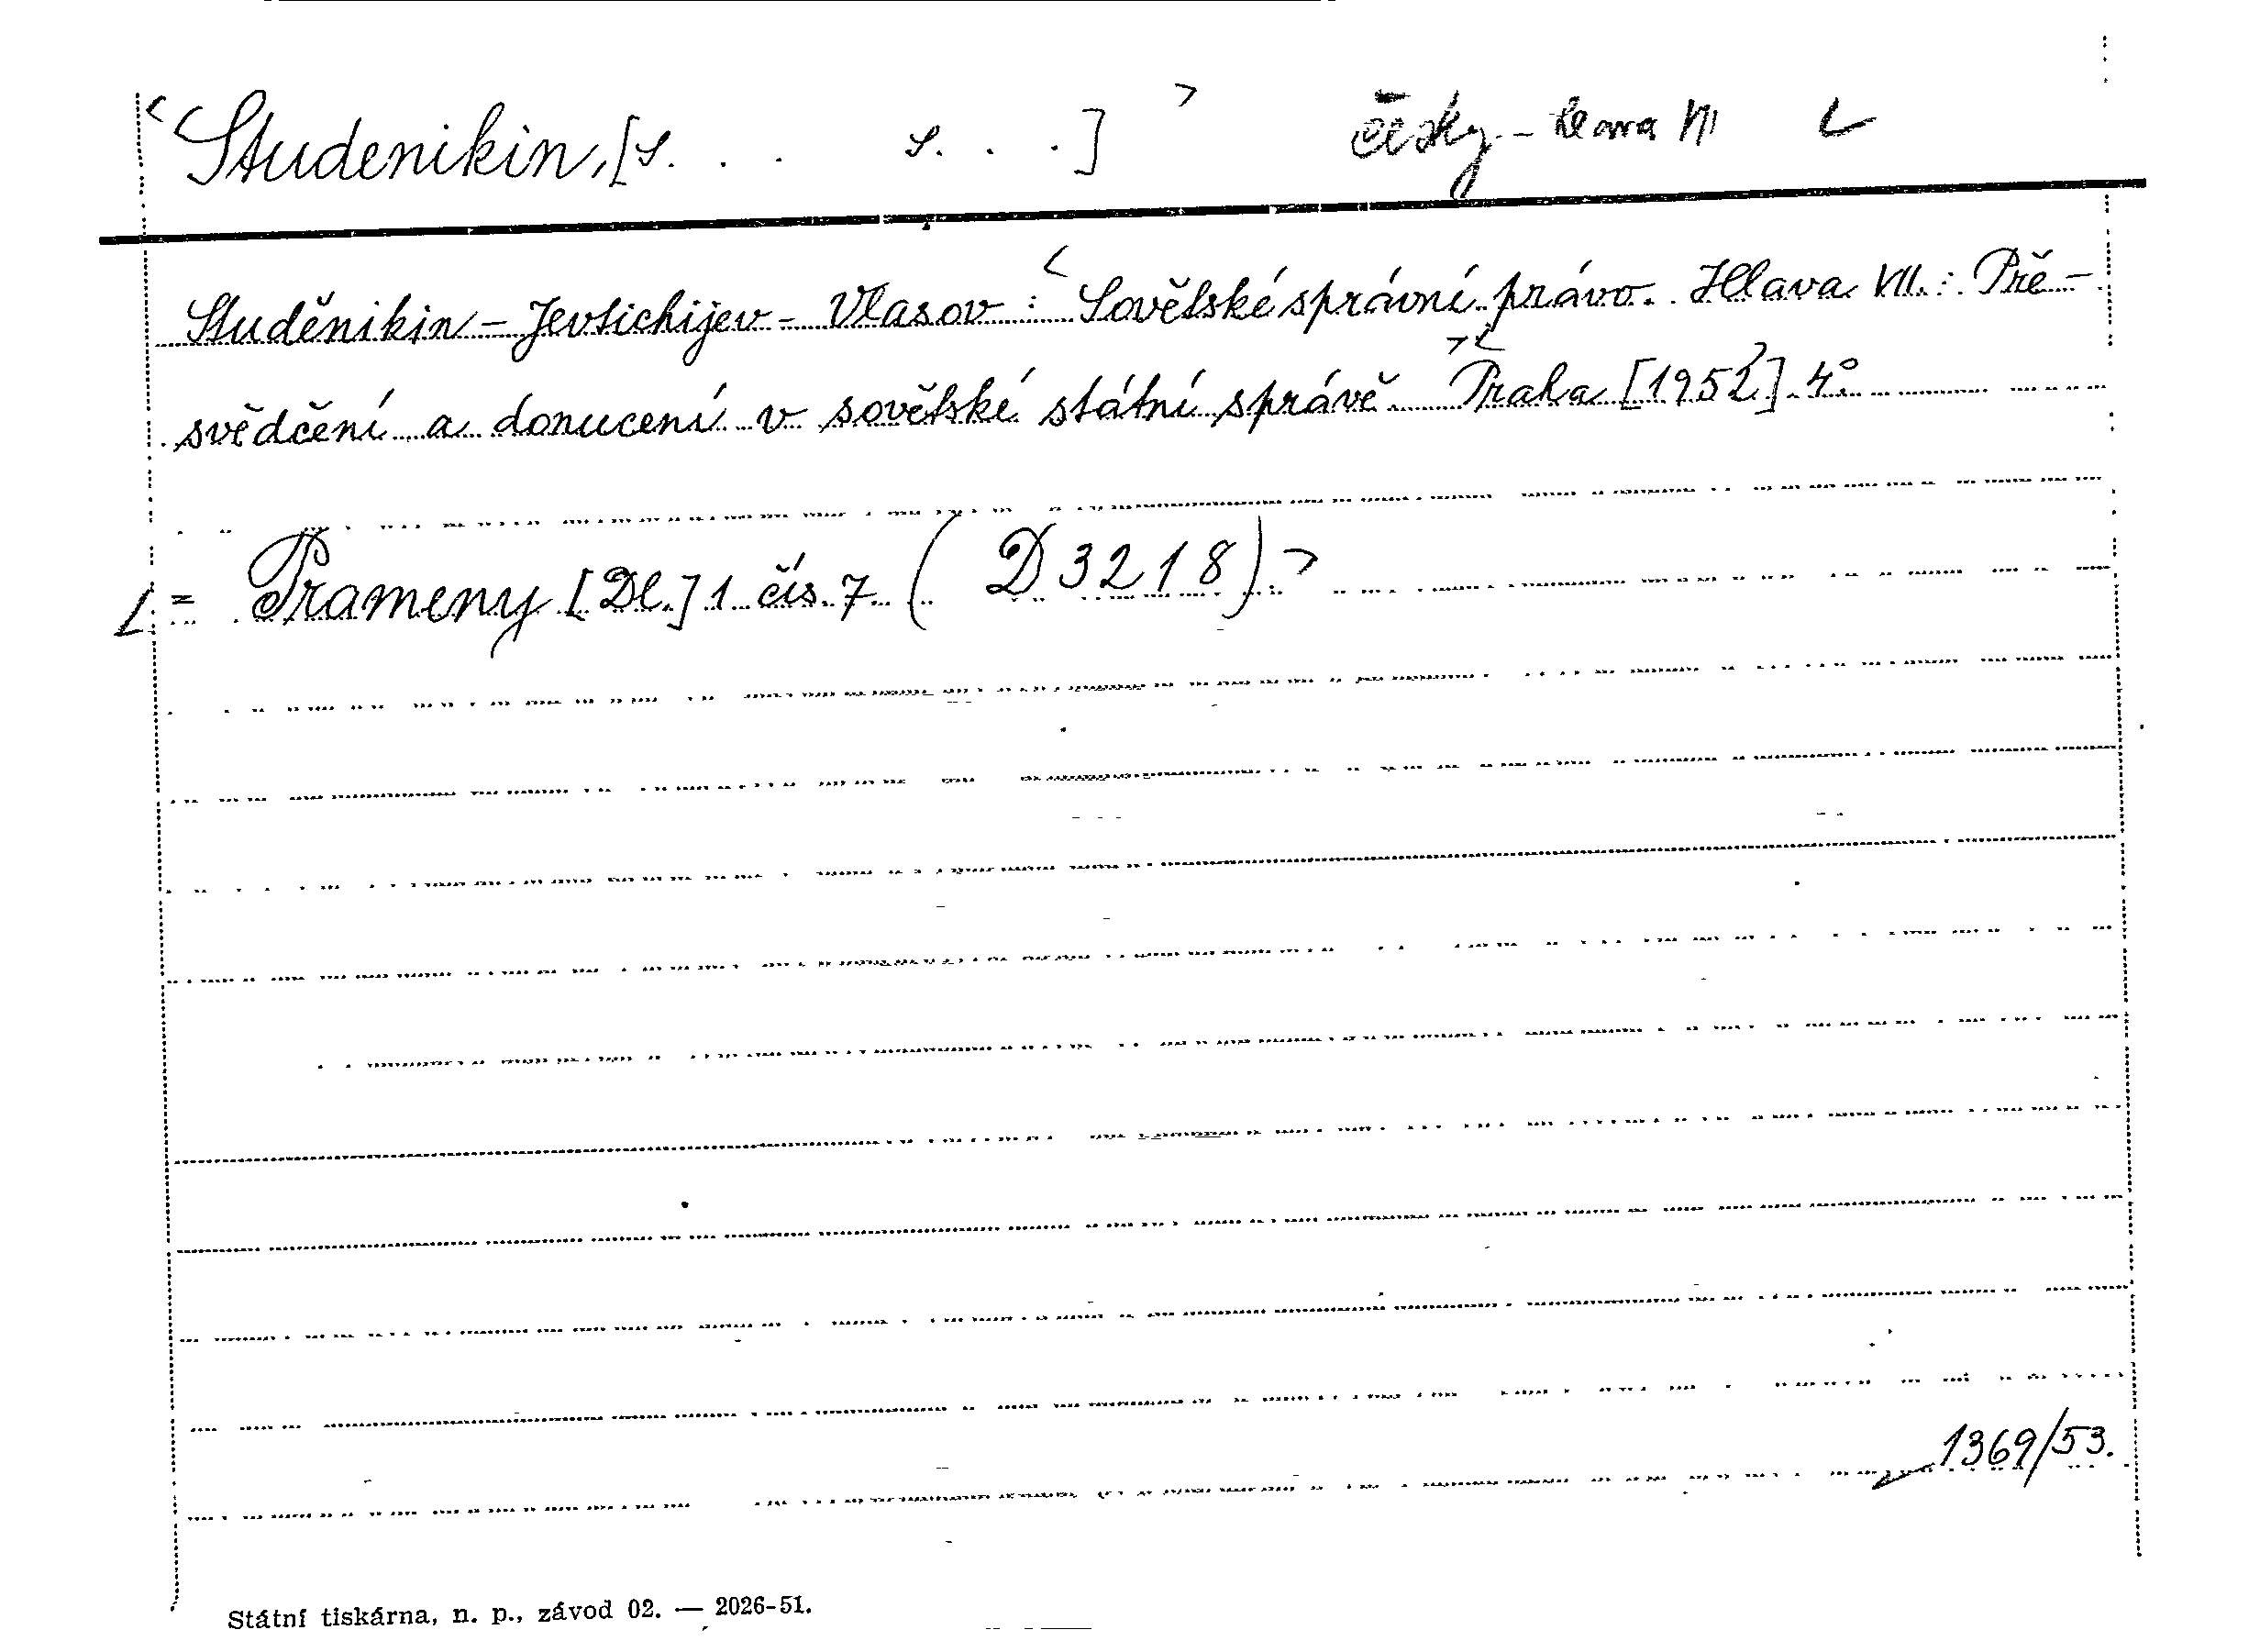 Studenikin, [S. . . S. . .] česky - hlava VII
Studěnikin - Jevtichijev - Vlasov : Sovětské správní právo. Hlava VII. : Pře-
svědčení a donucení v sovětské státní správě. Praha [1952] 4°
= Prameny [Dl.] 1 čís. 7 ( D 3218 )
1369/53.
Státní tiskárna, n. p., závod 02. — 2026-51.